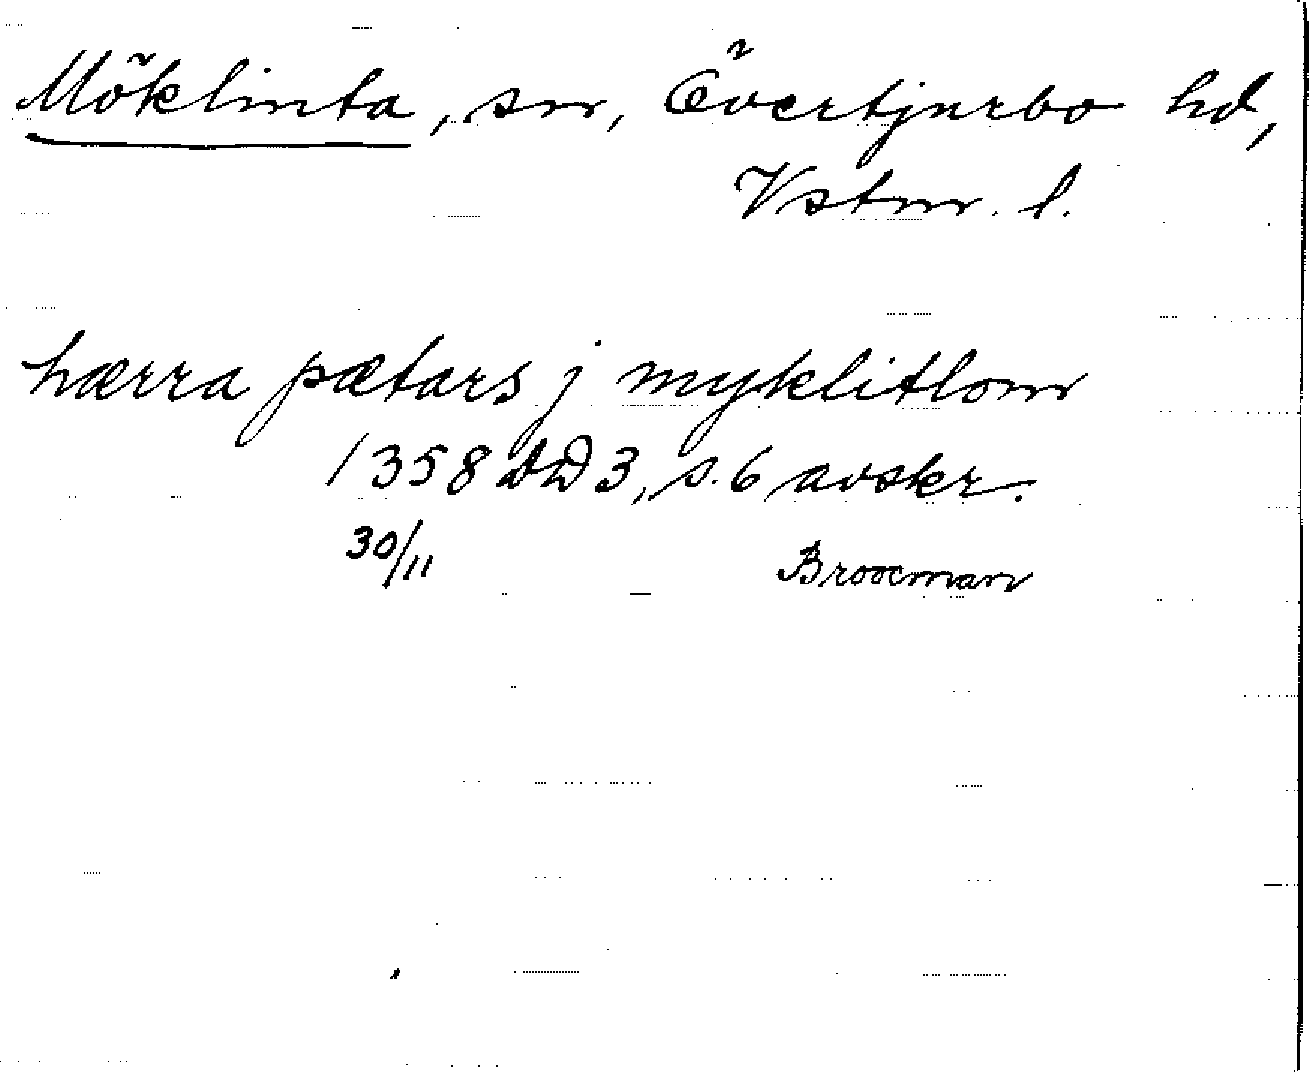 Möklinta, sn, Övertjurbo hd,
Vstm. l.
hærra pætars j myklitlom
1358 DD 3, s. 6 avskr.
30/11 Brooman